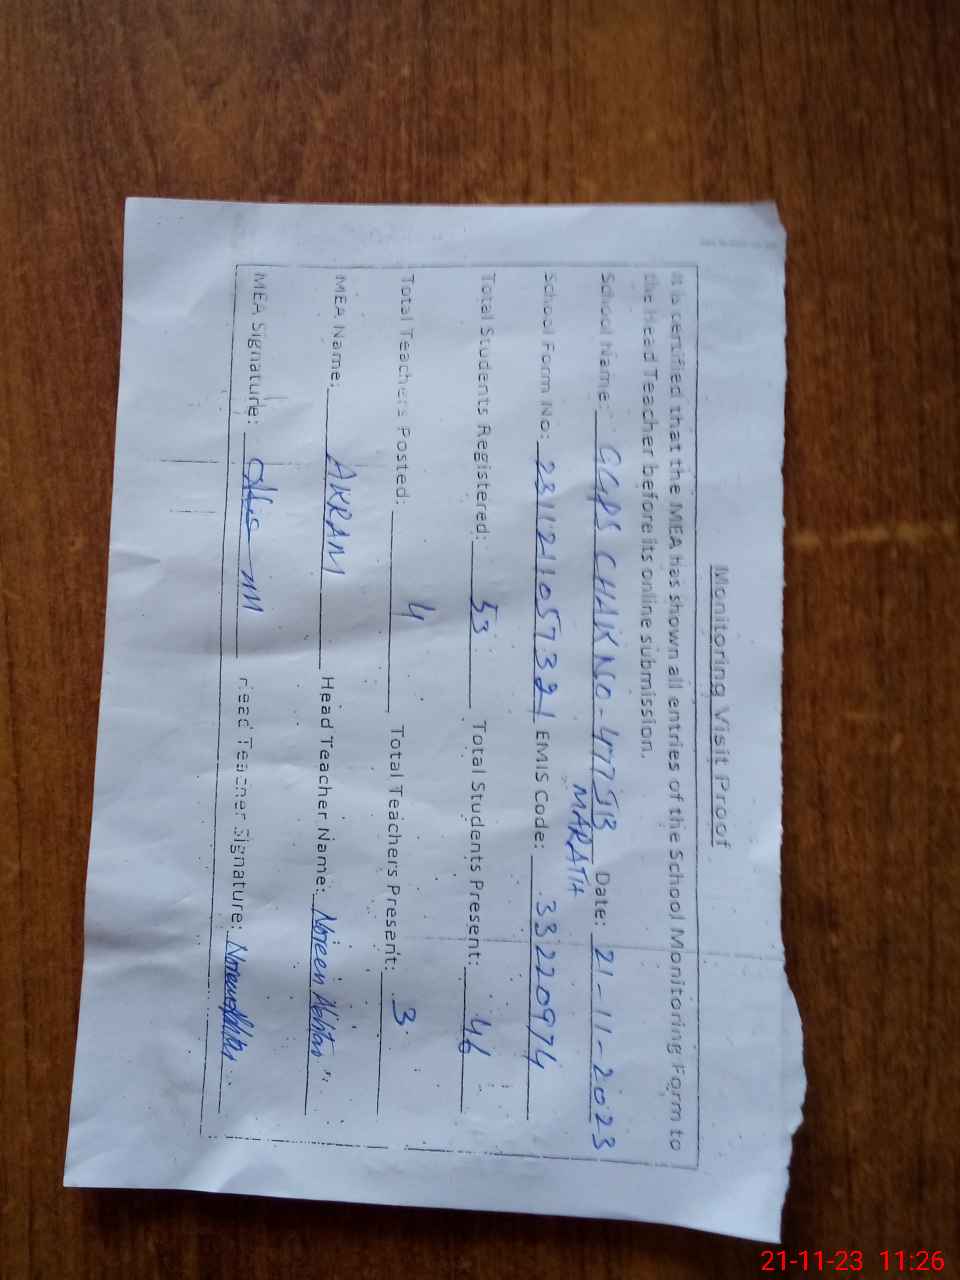 Monitoring Visit Proof
It is certified that the MEA has shown all entries of the School Monitoring Form to
the Head Teacher before its online submission.
School Name: GGPS CHAK NO-477 JB Date: 21-11-2023
MARATH
School Form No: 231121105732 1 EMIS Code: 33220974
Total Students Registered: 53 Total Students Present: 46
Total Teachers Posted: 4 Total Teachers Present: 3
MEA Name: AKRAM Head Teacher Name: Noreen Akhtar
MEA Signature: Head Teacher Signature: Noreen Akhtar
21-11-23 11:26